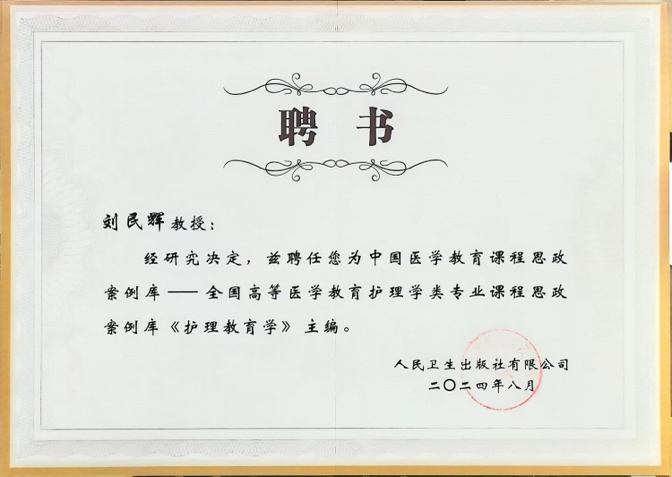 聘书
刘民辉教授：
经研究决定，兹聘任您为中国医学教育课程思政
案例库——全国高等医学教育护理学类专业课程思政
案例库《护理教育学》主编。
人民卫生出版社有限公司
二〇二四年八月